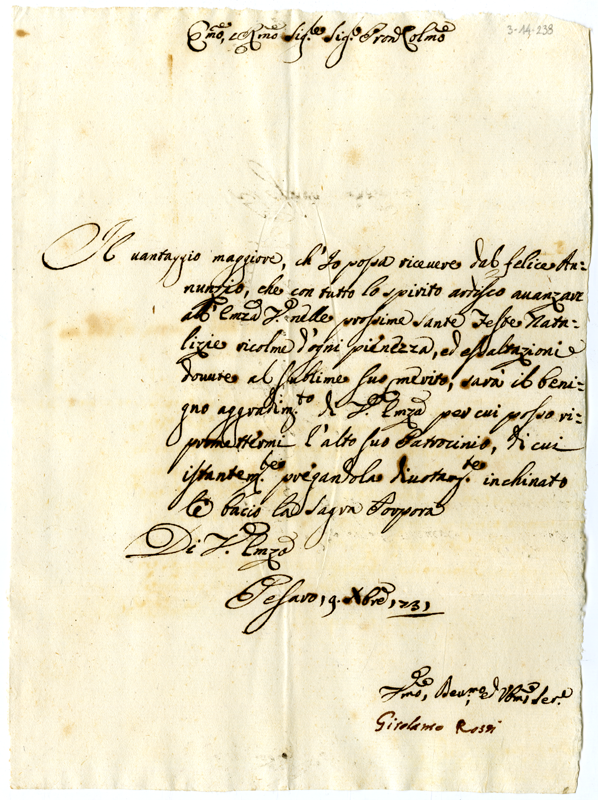 3-14-238
Emo, e Rmo Sig.re Sig.r Pron Colmo
Il vantaggio maggiore, ch'Io possa ricevere dal felice An=
nunzio, che con tutto lo spirito ardisco avanzare
all'Emza V.ra nelle prossime Sante Feste Nata=
lizie ricolme d'ogni pienezza, ed essaltazioni
dovute al sublime suo merito, sarà il beni=
gno aggradim.to di V.ra Emza per cui posso ri=
promettermi l'alto suo Patrocinio, di cui
istantem.te pregandola divotam.te inchinato
le bacio la Sagra Porpora
Di V.ra Emza
Pesaro, 9. Xbre, 1731
Vmo, Devmo ed Obmo Ser.e
Girolamo Rossi